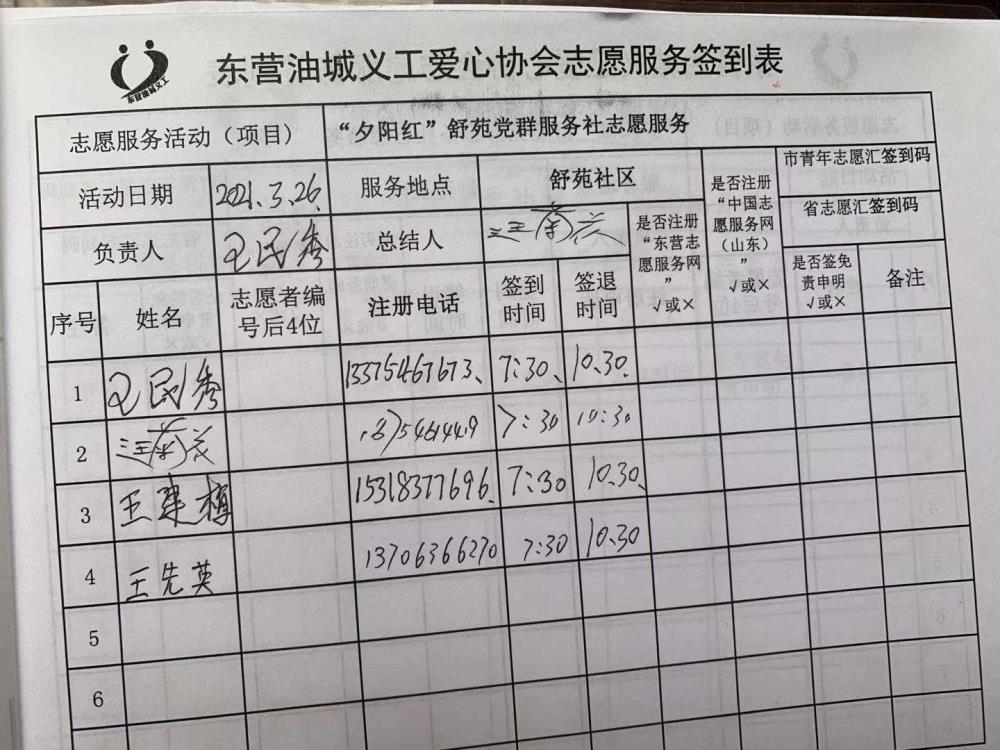 东营油城义工爱心协会志愿服务签到表
志愿服务活动（项目） “夕阳红”舒苑党群服务社志愿服务
活动日期 2021.3.26. 服务地点 舒苑社区 是否注册“中国志愿服务网（山东）”√或× 市青年志愿汇签到码
负责人 王民秀 总结人 是否注册“东营志愿服务网”√或× 省志愿汇签到码
序号 姓名 志愿者编号后4位 注册电话 签到时间 签退时间 是否签免责申明√或× 备注
1 王民秀 13375467673、 7:30、 10.30.
2 7:30 10:30
3 王建梅 15318377696. 7:30 10.30.
4 王先英 13706366270 7:30 10.30
5
6